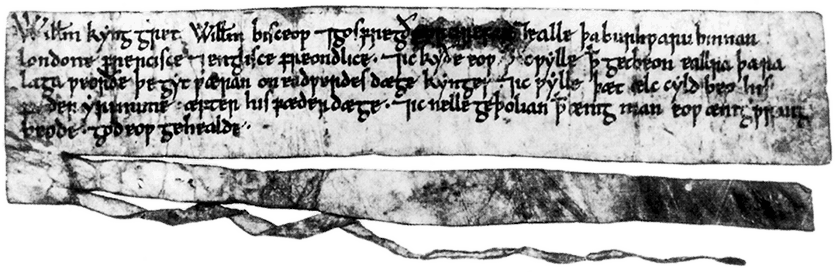 Willm kyng gret Willm bisceop ⁊ gosfregð ealle þa burhƿaru binnan
londone frencisce ⁊ englisce freondlice · ⁊ ic kyðe eoƿ ic ƿylle ꝥ get beon eallra þæra
laga ƿeorðe þe gyt ƿæran on eadƿerdes dæge kynges ⁊ ic ƿylle þæt ælc cyld beo his
fæder yrfnume · æfter his fæder dæge · ⁊ ic nelle geþolian ꝥ ænig man eoƿ ænig ƿrang
beode · god eoƿ gehealde ·